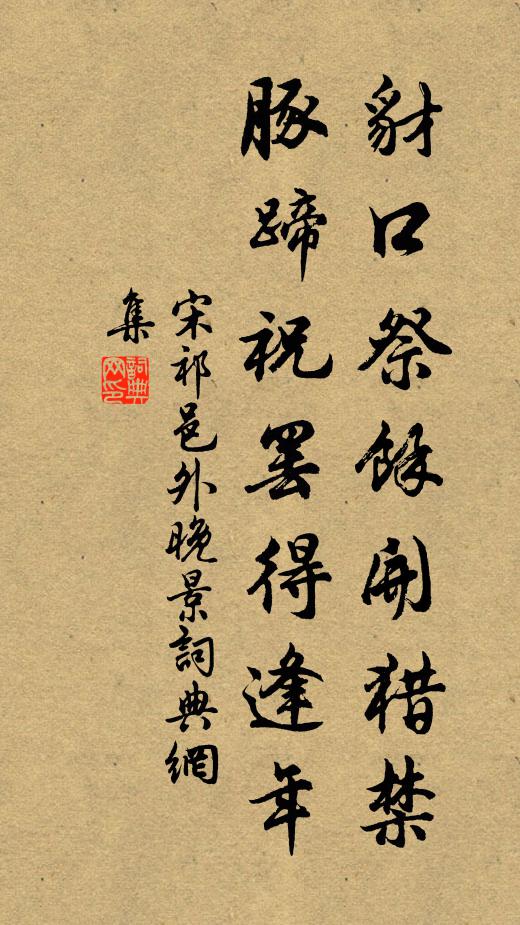 豺口祭餘開猎禁
豚蹄祝罢得逢年
宋祁邑外晚景詞典網
集
詞典
网印